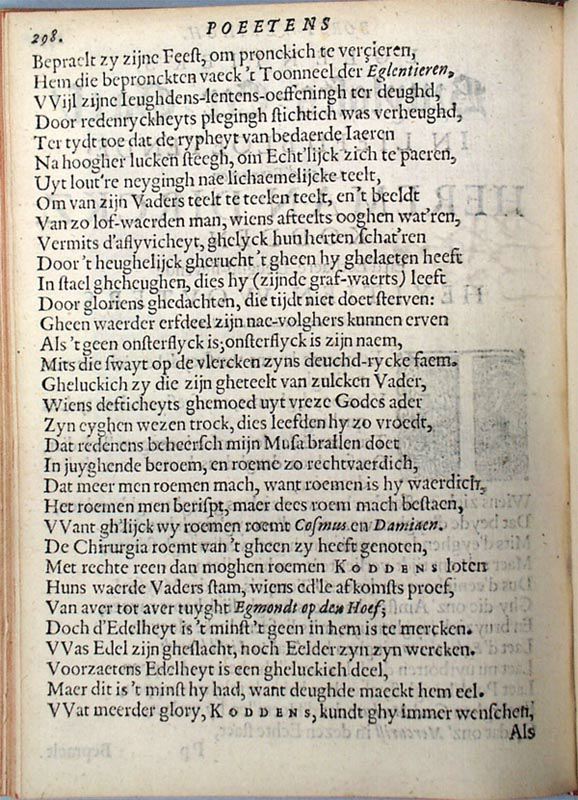 298.
POEETENS
Bepraelt zy zijne Feest, om pronckich te verçieren,
Hem die bepronckten vaeck 't Toonneel der Eglentieren,
VVijl zijne Ieughdens-lentens-oeffeningh ter deughd,
Door redenryckheyts plegingh stichtich was verheughd,
Ter tydt toe dat de rypheyt van bedaerde Iaeren
Na hoogher lucken steegh, om Echt'lijck zich te paeren,
Uyt lout're neygingh nae lichaemelijcke teelt,
Om van zijn Vaders teelt te teelen teelt, en't beeldt
Van zo lof-waerden man, wiens afteelts ooghen wat'ren,
Vermits d'aflyvicheyt, ghelyck hun herten schat'ren
Door 't heughelijck gherucht 't gheen hy ghelaeten heeft
In stael gheheughen, dies hy (zijnde graf-waerts) leeft
Door gloriens ghedachten, die tijdt niet doet sterven:
Gheen waerder erfdeel zijn nae-volghers kunnen erven
Als 't geen onsterflyck is; onsterflyck is zijn naem,
Mits die swayt op de vlercken zyns deuchd-rycke faem.
Gheluckich zy die zijn gheteelt van zulcken Vader,
Wiens defticheyts ghemoed uyt vreze Godes ader
Zyn eyghen wezen trock, dies leefden hy zo vroedt,
Dat redenens beheersch mijn Musa brallen doet
In juyghende beroem, en roeme zo rechtvaerdich,
Dat meer men roemen mach, want roemen is hy waerdich,
Het roemen men berispt, maer dees roem mach bestaen,
VVant gh'lijck wy roemen roemt Cosmus en Damiaen.
De Chirurgia roemt van 't gheen zy heeft genoten,
Met rechte reen dan moghen roemen KODDENS loten
Huns waerde Vaders stam, wiens ed'le afkomsts proef,
Van aver tot aver tuyght Egmondt op den Hoef;
Doch d'Edelheyt is 't minst 't geen in hem is te mercken.
VVas Edel zijn gheslacht, noch Eelder zyn zyn wercken.
Voorzaetens Edelheyt is een gheluckich deel,
Maer dit is 't minst hy had, want deughde maeckt hem eel.
VVat meerder glory, KODDENS, kundt ghy immer wenschen,
Als